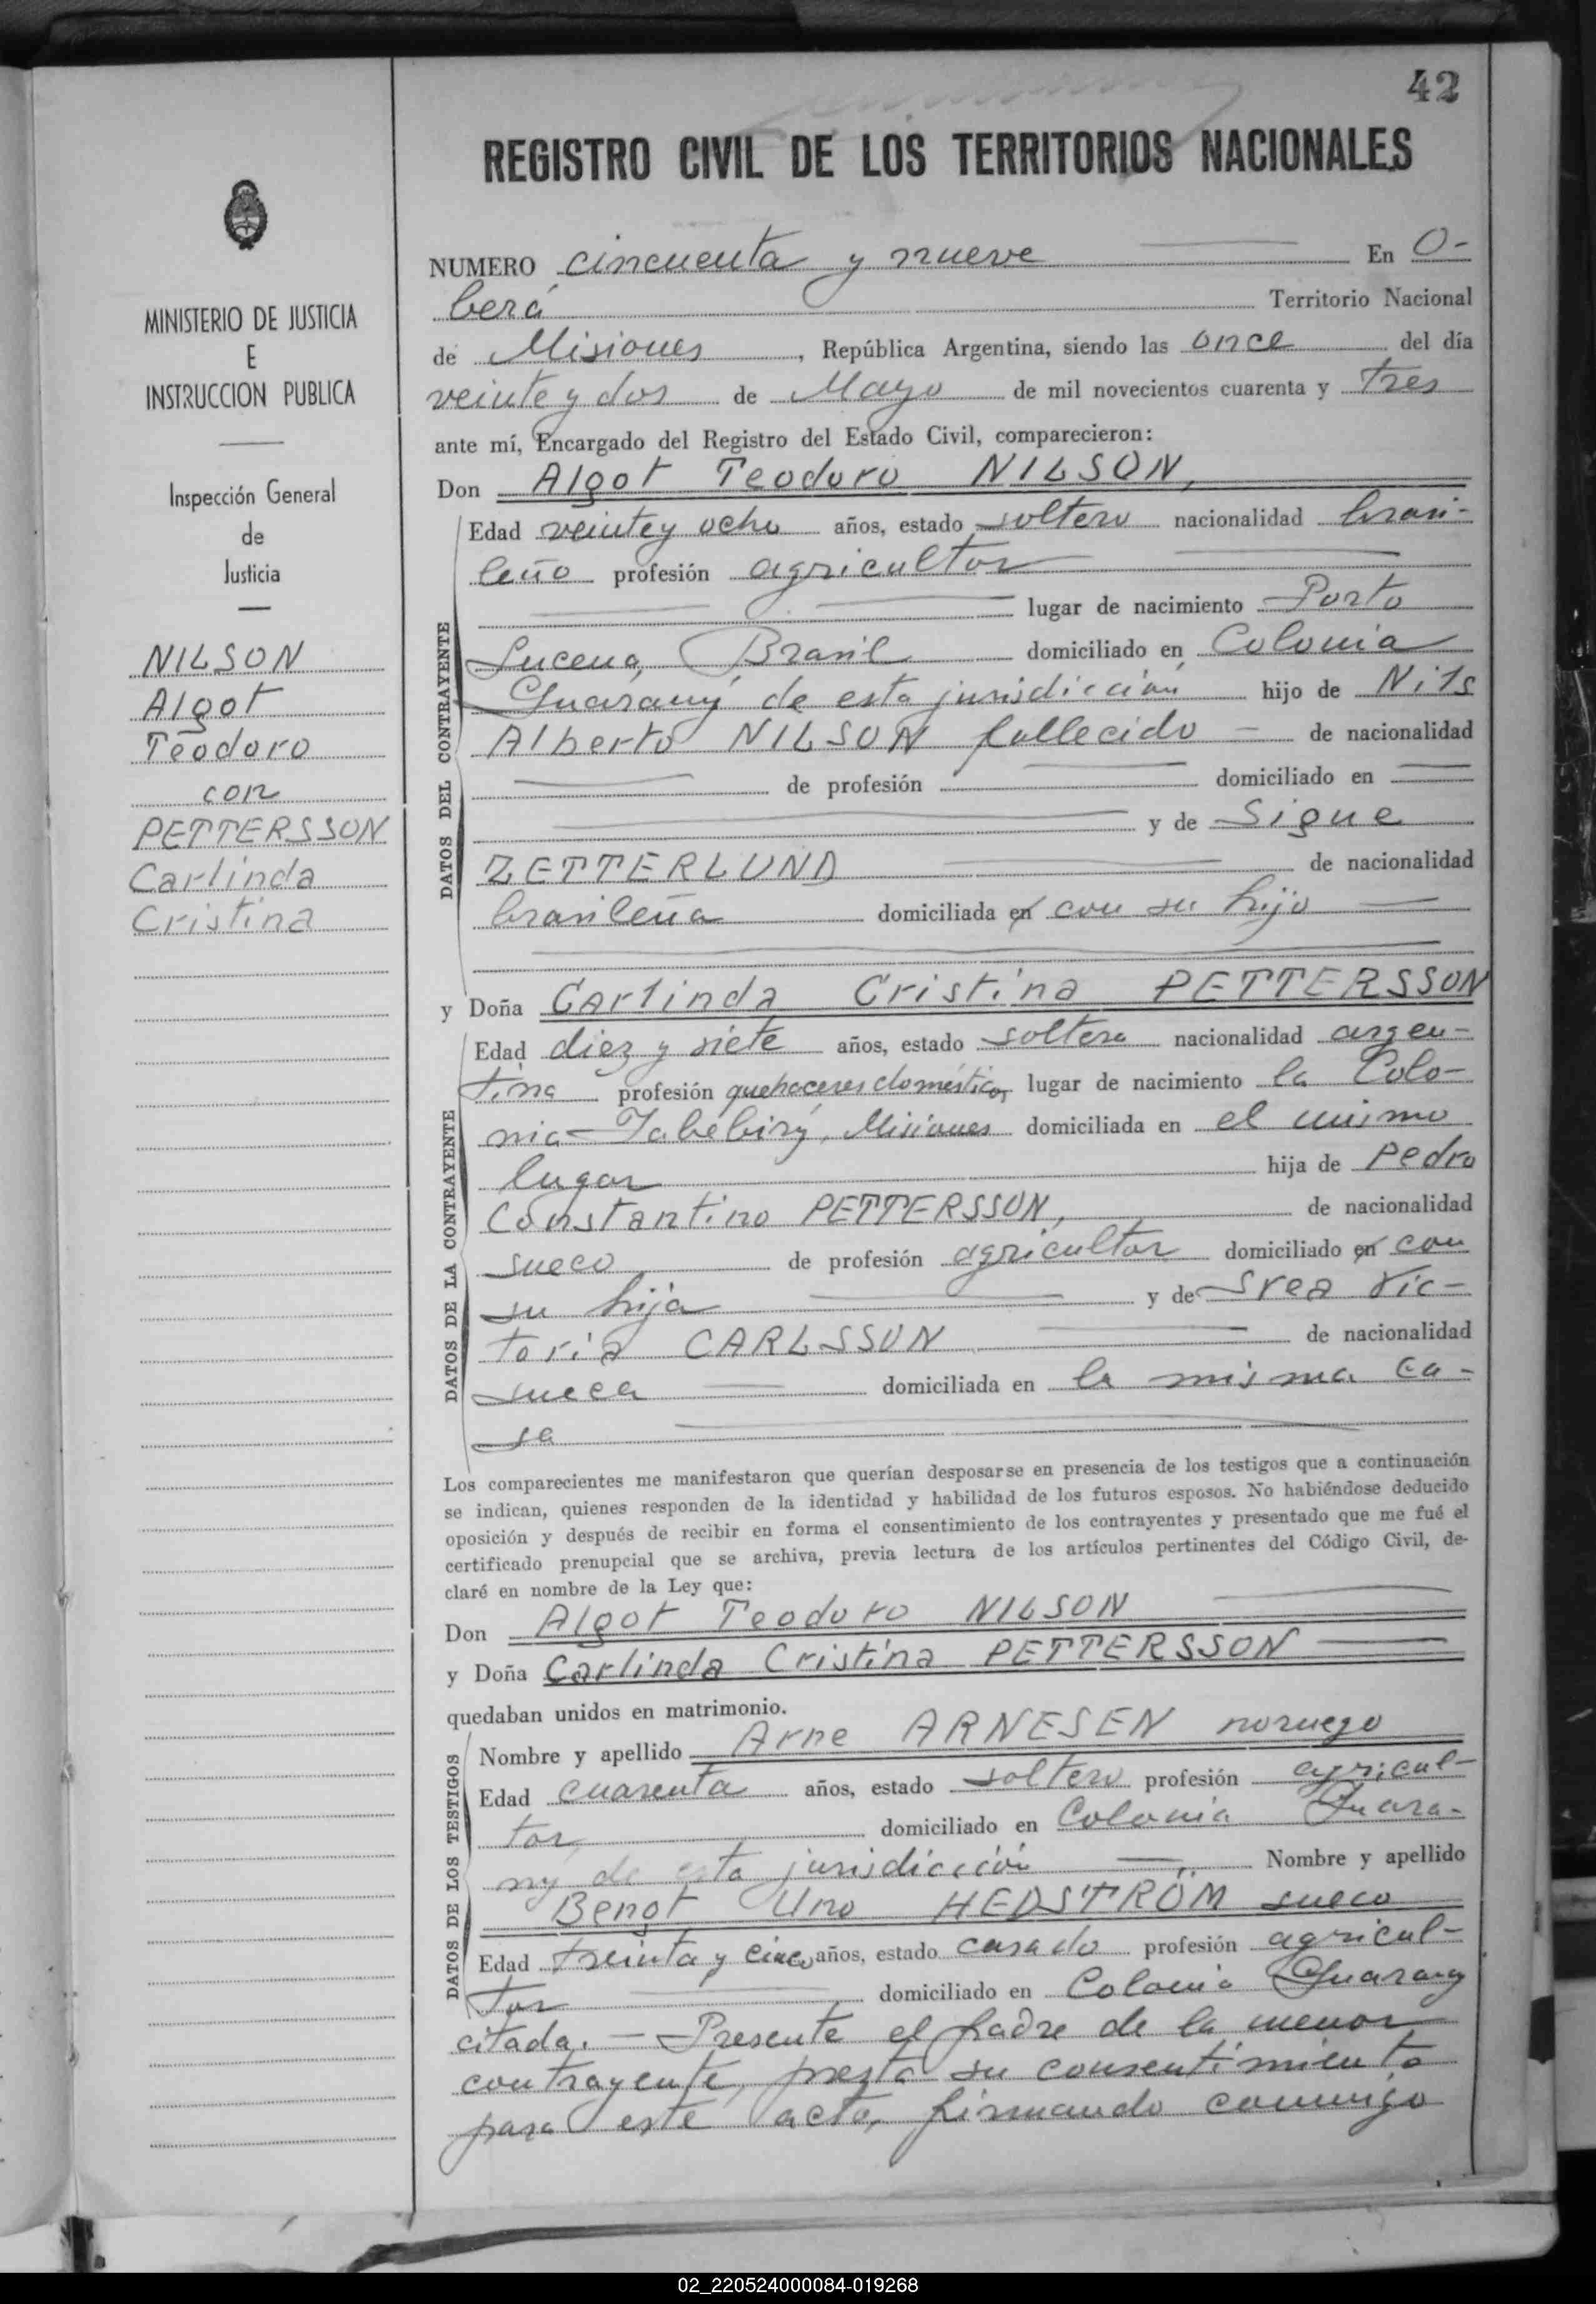 42
REGISTRO CIVIL DE LOS TERRITORIOS NACIONALES
MINISTERIO DE JUSTICIA
E
INSTRUCCION PUBLICA
Inspección General
de
Justicia
NILSON
Algot
Teodoro
con
PETTERSSON
Carlinda
Cristina
NUMERO cincuenta y nueve En O-
berá Territorio Nacional
de Misiones, República Argentina, siendo las once del día
veinte y dos de Mayo de mil novecientos cuarenta y tres
ante mí, Encargado del Registro del Estado Civil, comparecieron:
Don Algot Teodoro NILSON,
DATOS DEL CONTRAYENTE
Edad veinte y ocho años, estado soltero nacionalidad brasi-
leño profesión agricultor
lugar de nacimiento Porto
Lucena, Brasil domiciliado en Colonia
Guarany, de esta jurisdicción hijo de Nils
Alberto NILSON fallecido de nacionalidad
de profesión domiciliado en
y de Signe
ZETTERLUND de nacionalidad
brasileña domiciliada en con su hijo
y Doña Carlinda Cristina PETTERSSON
DATOS DE LA CONTRAYENTE
Edad diez y siete años, estado soltera nacionalidad argen-
tina profesión quehaceres domésticos lugar de nacimiento la Colo-
nia Yabebiry, Misiones domiciliada en el mismo
lugar hija de Pedro
Constantino PETTERSSON, de nacionalidad
sueco de profesión agricultor domiciliado en con
su hija y de Svea Vic-
toria CARLSSON de nacionalidad
sueca domiciliada en la misma ca-
sa
Los comparecientes me manifestaron que querían desposarse en presencia de los testigos que a continuación
se indican, quienes responden de la identidad y habilidad de los futuros esposos. No habiéndose deducido
oposición y después de recibir en forma el consentimiento de los contrayentes y presentado que me fué el
certificado prenupcial que se archiva, previa lectura de los artículos pertinentes del Código Civil, de-
claré en nombre de la Ley que:
Don Algot Teodoro NILSON
y Doña Carlinda Cristina PETTERSSON
quedaban unidos en matrimonio.
DATOS DE LOS TESTIGOS
Nombre y apellido Arne ARNESEN noruego
Edad cuarenta años, estado soltero profesión agricul-
tor, domiciliado en Colonia Guara-
ny de esta jurisdicción Nombre y apellido
Bengt Uno HEDSTRÖM sueco
Edad treinta y cinco años, estado casado profesión agricul-
tor domiciliado en Colonia Guarany
citada. — Presente el padre de la menor
contrayente, presta su consentimiento
para este acto, firmando conmigo
02_220524000084-019268